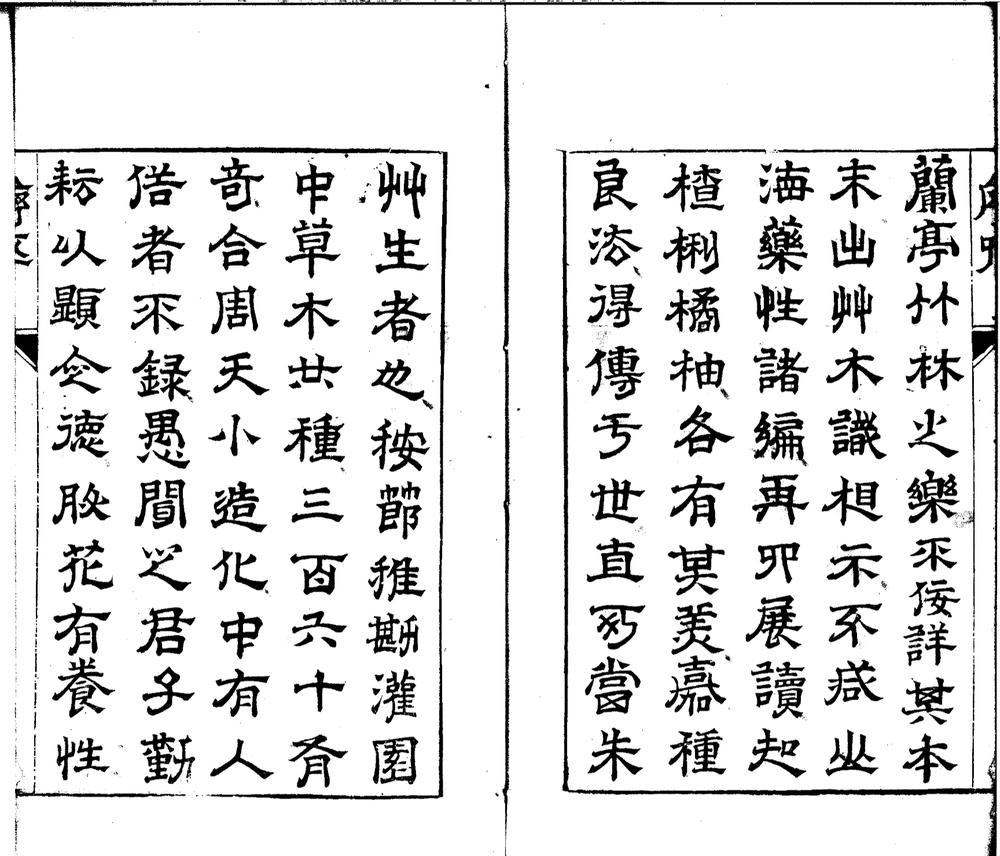 蘭亭竹林之樂不佞詳其本
末出艸木識相示不山
海藥性諸編再四展讀知
楂梸橘柚各有其美嘉種
良法得傳于世直可當朱
艸生者也按節推勘灌園
中草木廿種三百六十有
奇合周天小造化中有人
俗者不録愚聞之君子勤
耘以顯令德花有養性